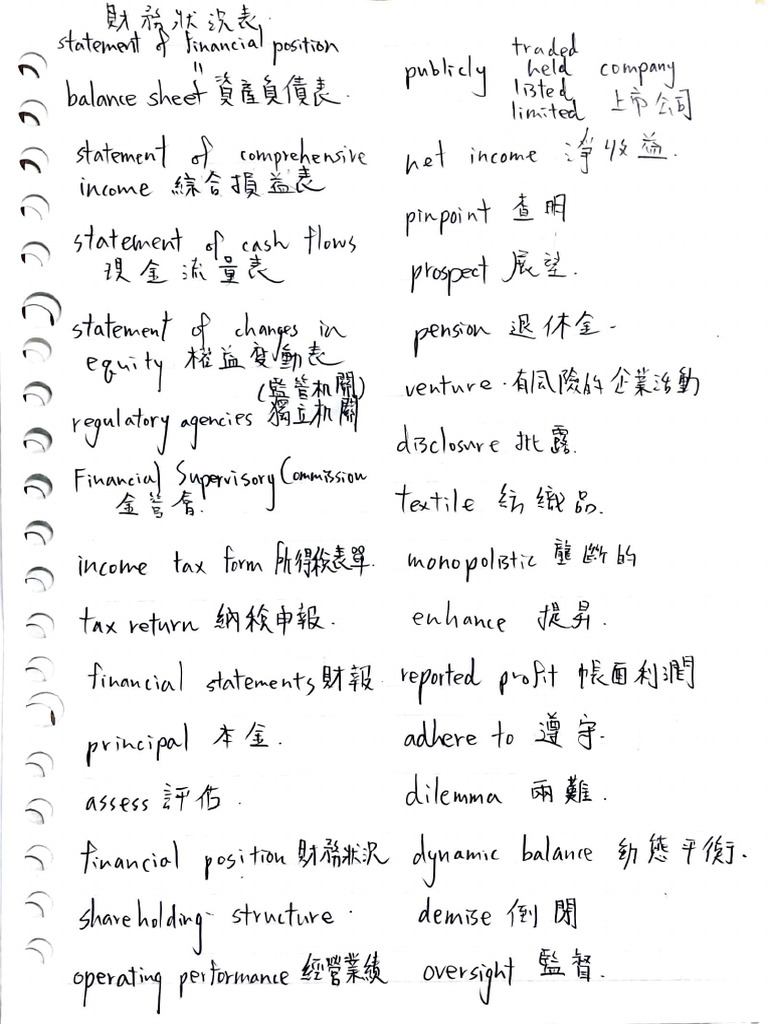 財務狀況表
statement of financial position
=
balance sheet 資產負債表.
statement of comprehensive
income 綜合損益表
statement of cash flows
現金流量表
statement of changes in
equity 權益變動表
(監管机關)
regulatory agencies 獨立机關
Financial Supervisory Commission
金管會.
income tax form 所得稅表單.
tax return 納稅申報.
financial statements 財報
principal 本金.
assess 評估.
financial position 財務狀況
shareholding structure.
operating performance 經營業績
traded
publicly held company
listed
limited 上市公司
net income 淨收益.
pinpoint 查明
prospect 展望.
pension 退休金-
venture.有風險的企業活動
disclosure 批露.
textile 紡織品.
monopolistic 壟斷的
enhance 提昇.
reported profit 帳面利潤
adhere to 遵守.
dilemma 兩難.
dynamic balance 動態平衡.
demise 倒閉
oversight 監督.